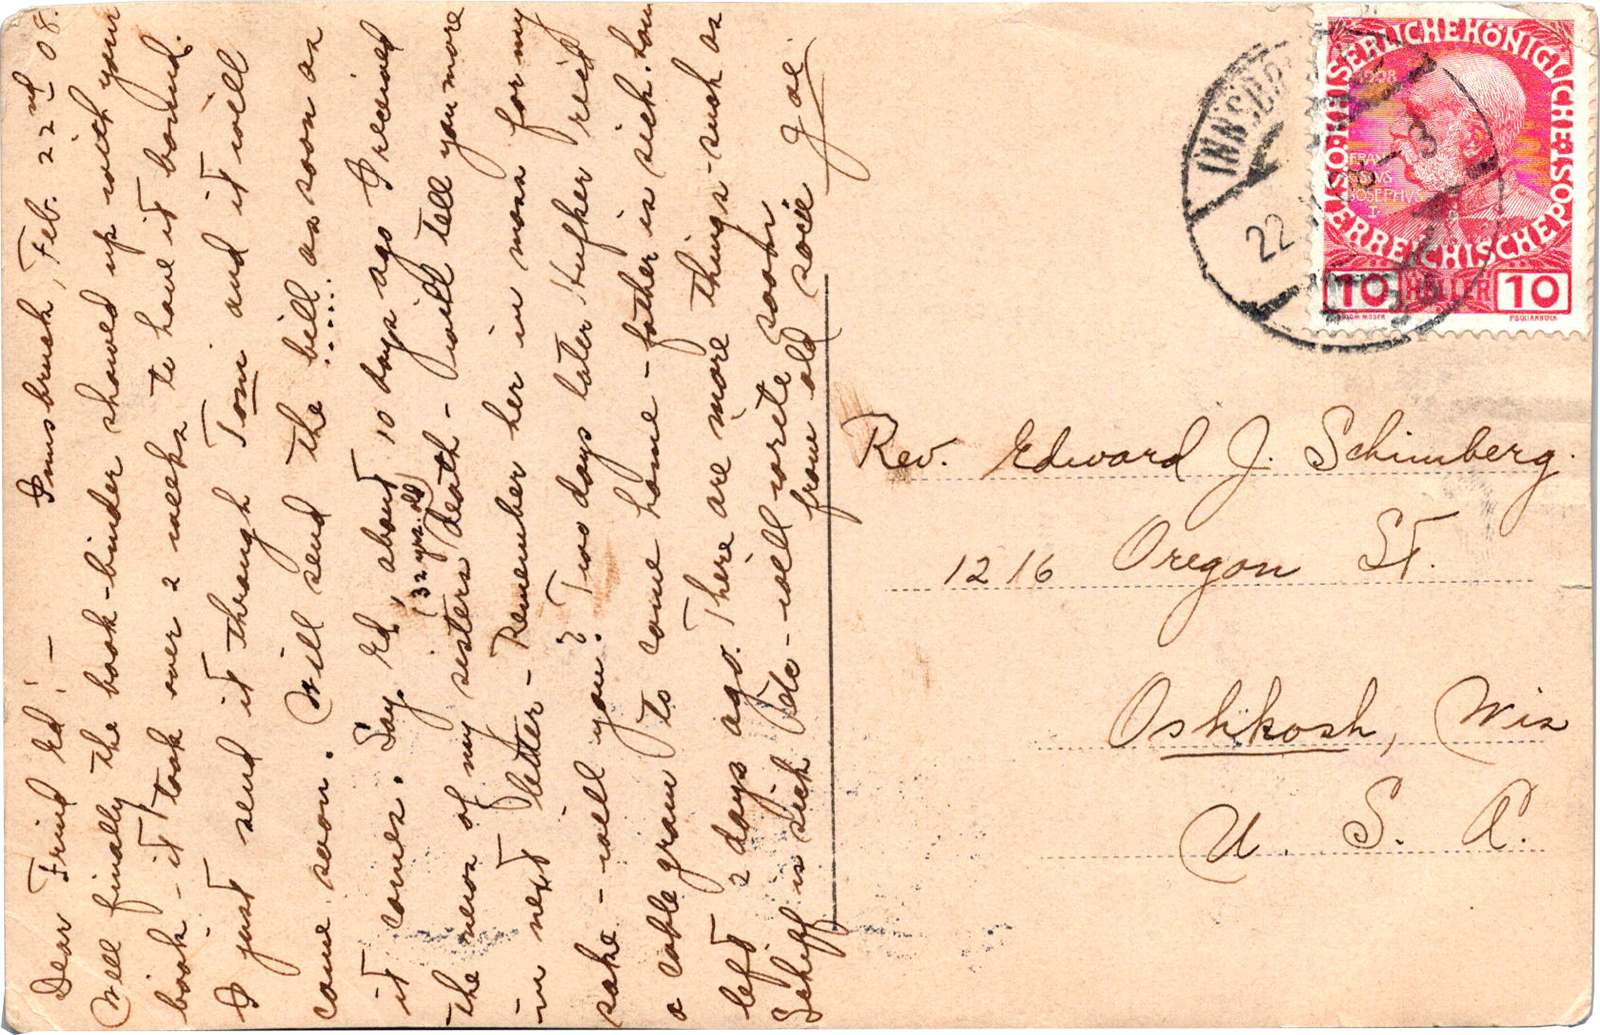 Innsbruck, Feb. 22nd 08.
Dear Friend Ed! —
Well finally the book-binder showed up with your
book - it took over 2 weeks to have it bound.
I just send it through Toni and it will
come soon. Will send the bill as soon as
it comes. Say, Ed, about 10 days ago I received
(32 yrs. old)
the news of my sisters death - will tell you more
in next letter - Remember her in mass for my
sake - will you? Two days later Hufker rec'd
a cable gram to come home - father is sick. Lou
left 2 days ago. There are more things - such as
Schiff is sick etc - will write soon
from old soil
Joe
Rev. Edward J. Schimberg.
1216 Oregon St.
Oshkosh, Wis
U. S. A.
INNSBR
22
3
KAISERLICHE KÖNIGLICHE
ÖSTERREICHISCHE POST
1908
FRANC
IOSEPHVS
I
10 HELLER 10